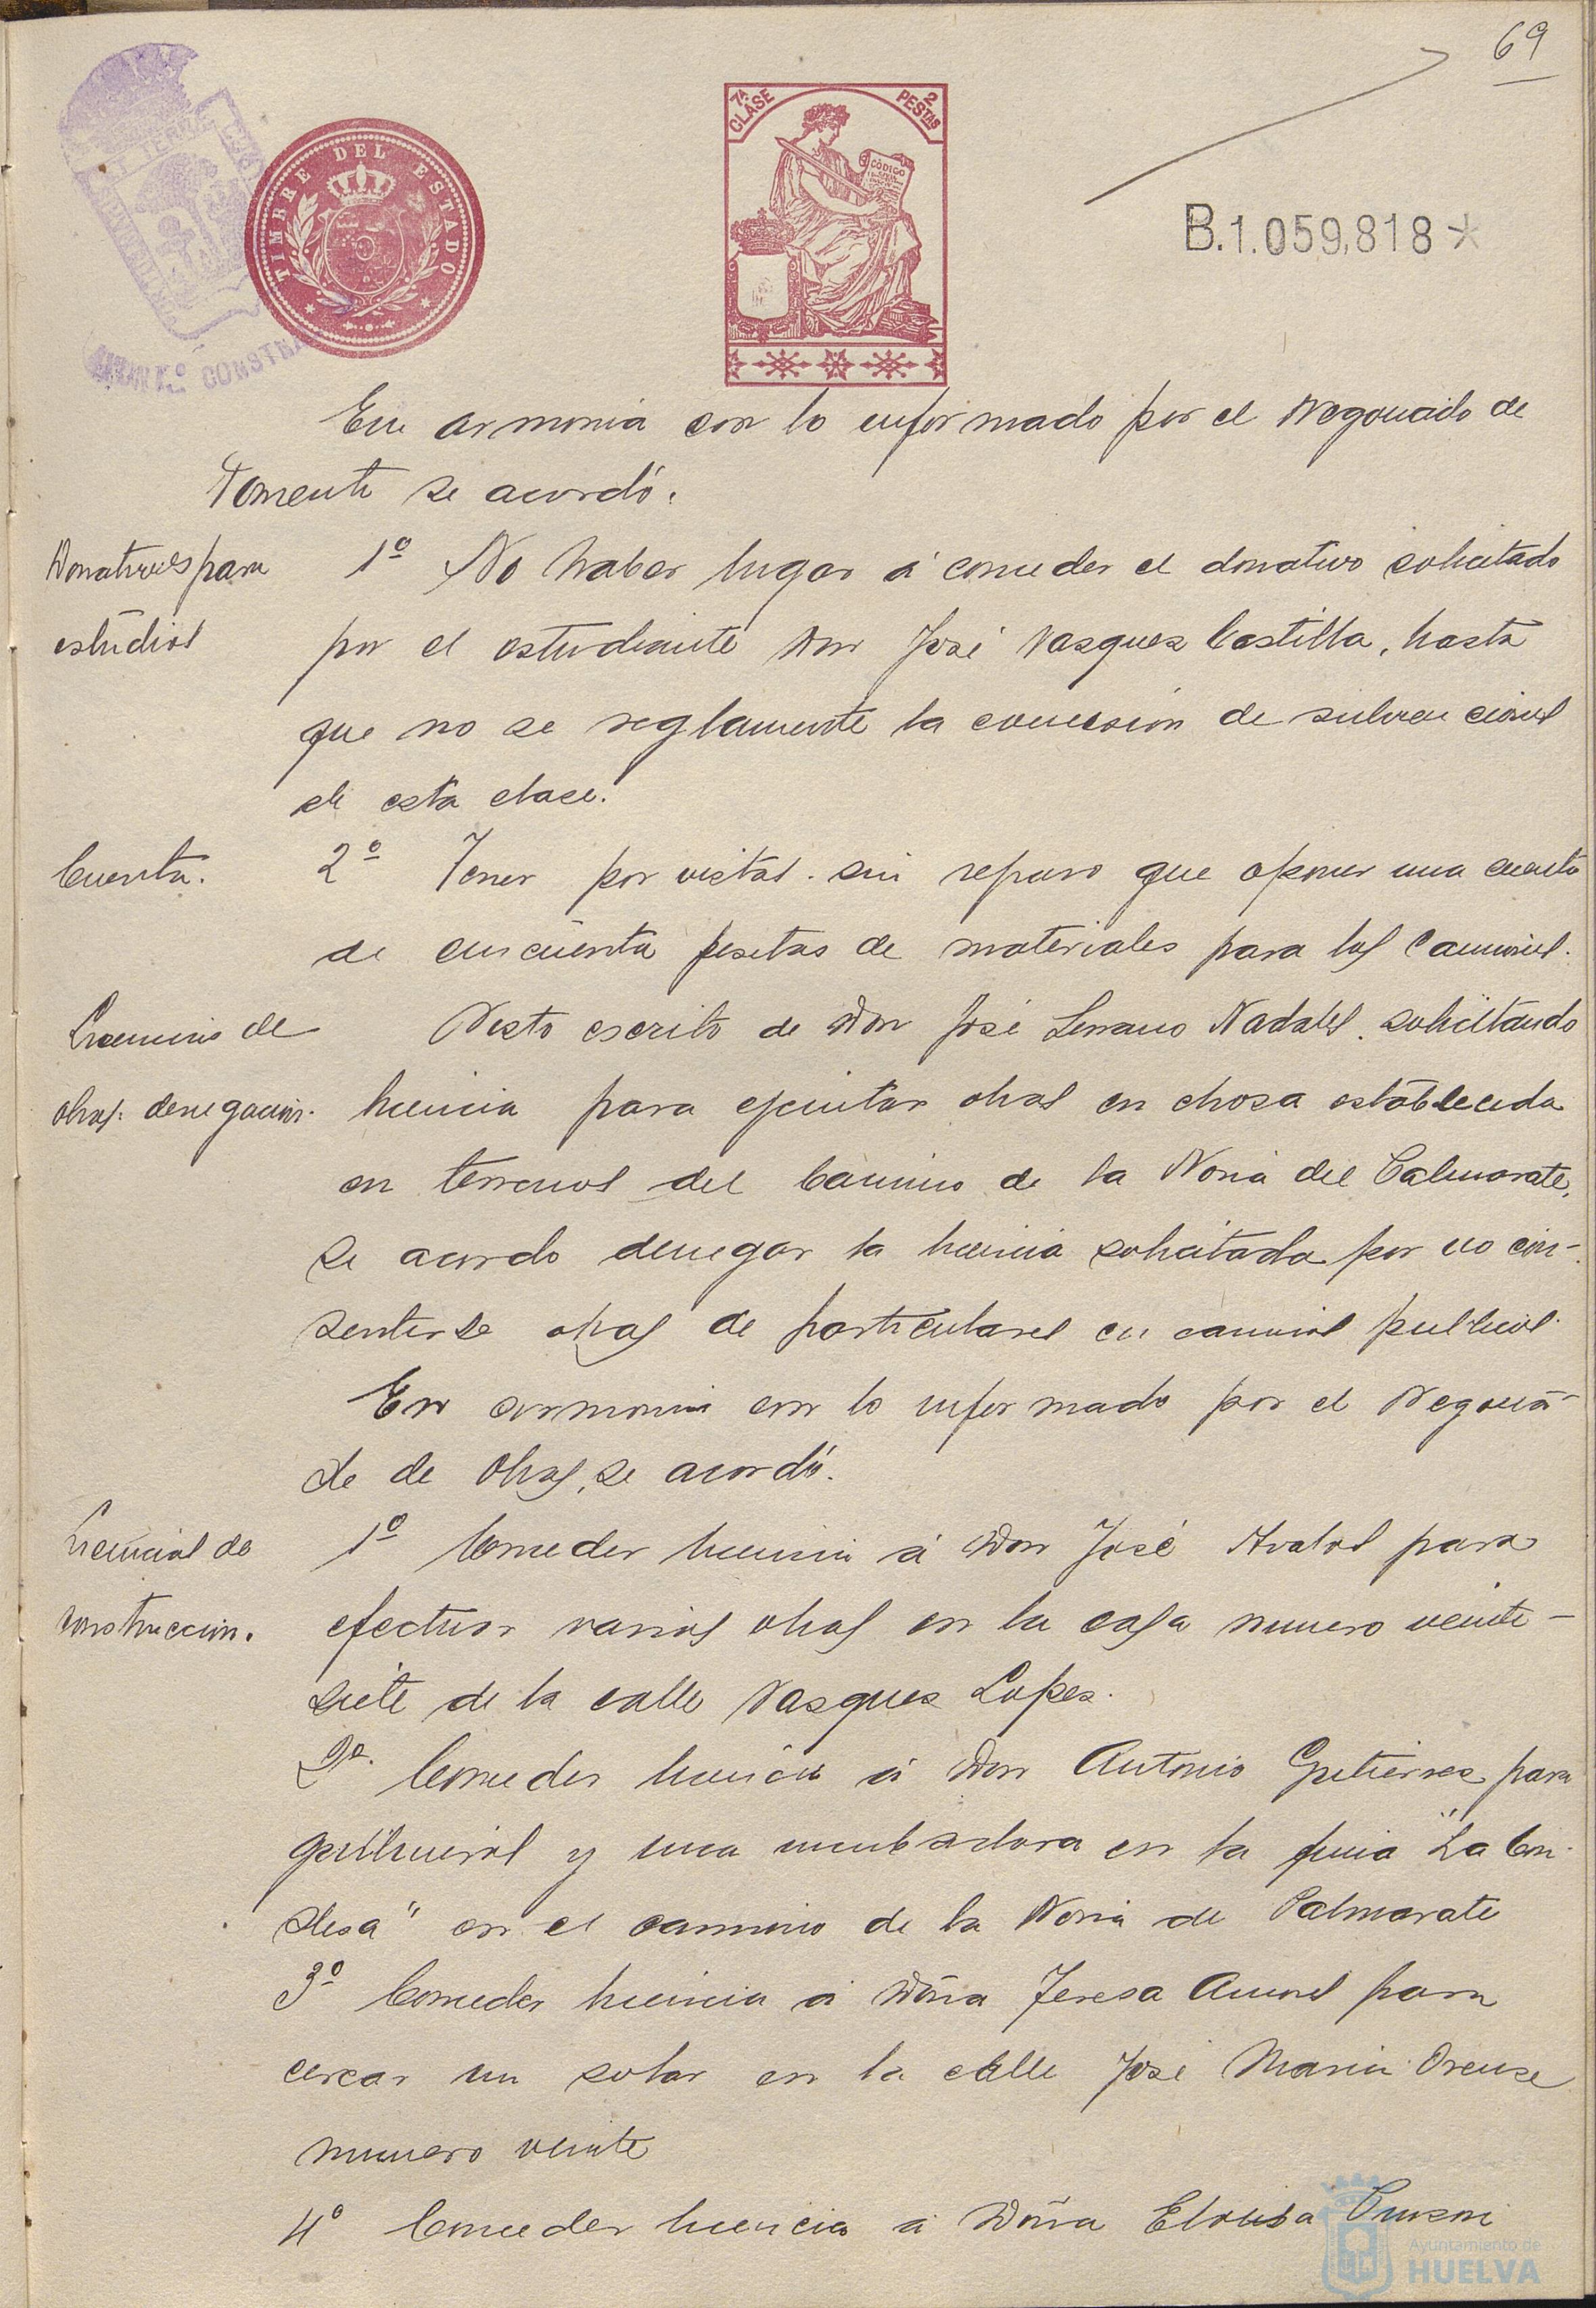 69
7ª CLASE
2 PESTAS
CÓDIGO
TIMBRE DEL ESTADO
B.1.059,818*
CONSTI
En armonia con lo informado por el Negociado de
Fomento se acordó.
Donativos para
estudios
1º No haber lugar á conceder el donativo solicitado
por el estudiante Don José Vasquez Castilla, hasta
que no se reglamente la concesión de subvenciones
de esta clase.
Cuenta.
2º Tener por vista sin reparo que oponer una cuenta
de cincuenta pesetas de materiales para los Caminos.
Licencias de
obras: denegación.
Visto escrito de Don José Serrano Nadales solicitando
licencia para ejecutar obras en choza establecida
en terrenos del Camino de la Noria del Calmarate,
se acordo denegar la licencia solicitada por no con-
sentirse obras de particulares en caminos publicos.
En armonia con lo informado por el Negocia-
do de Obras, se acordó.
Licencias de
construccion.
1º Conceder licencia á Don José Avalos para
efectuar varias obras en la casa numero veinte-
siete de la calle Vasques Lopez.
2º. Conceder licencia á Don Antonio Gutierrez para
gallineros y una incubadora en la finca "La Con-
desa" en el camino de la Noria de Palmarate
3º Conceder licencia á Doña Teresa para
cercar un solar en la calle José Maria Orense
numero veinte
4º Conceder licencia á Doña Eloisa
Ayuntamiento de
HUELVA